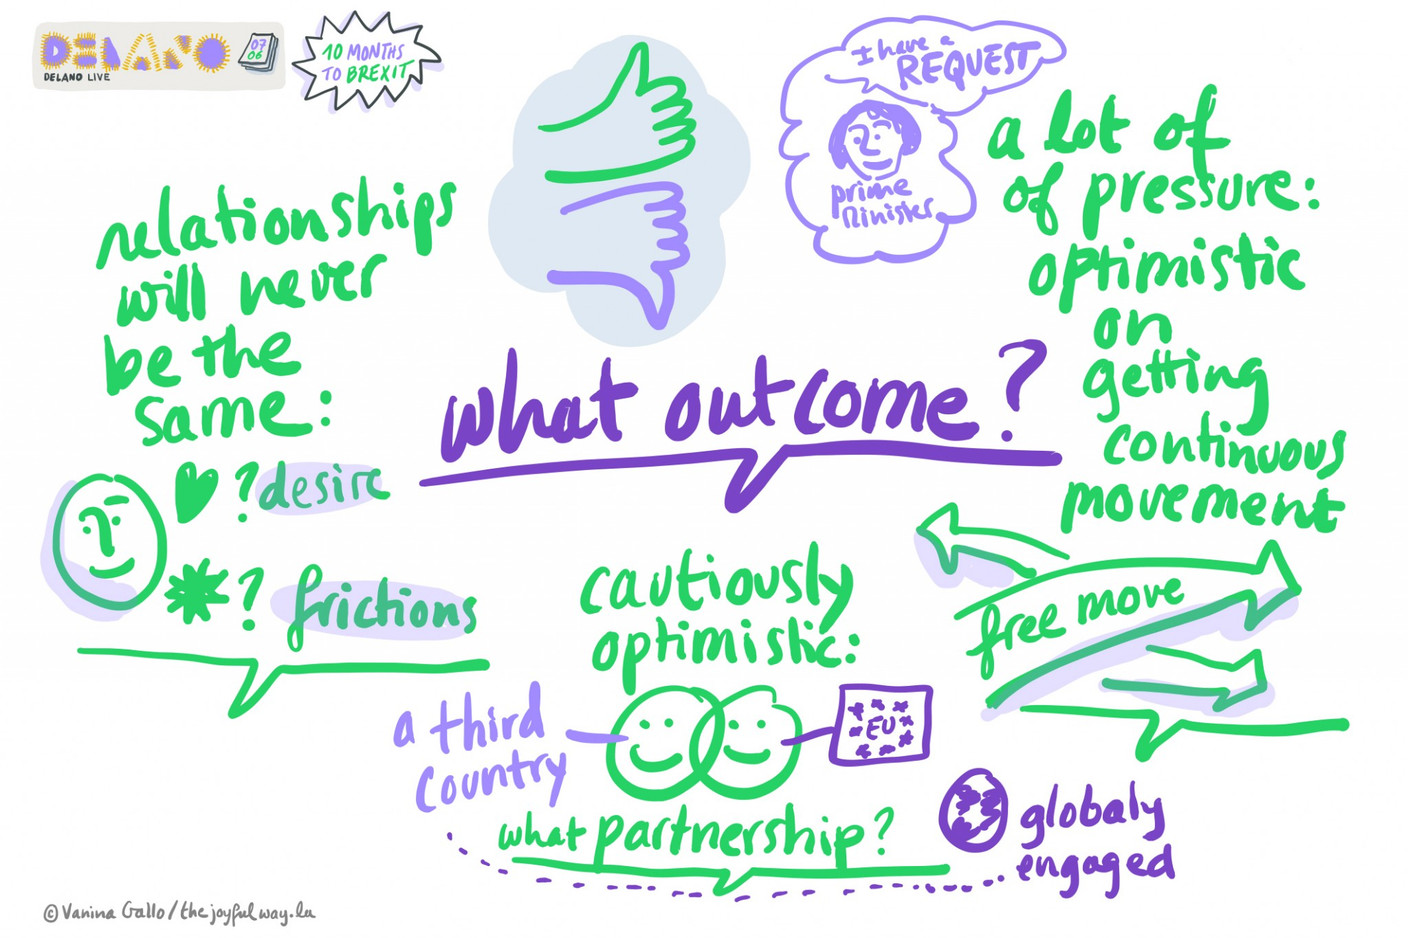 DELANO
DELANO LIVE
07
06
10 MONTHS
TO BREXIT
I have a
REQUEST
prime
Minister
a lot of
of pressure:
optimistic
on
getting
continuous
movement
free move
relationships
will never
be the
same:
? desire
? frictions
what outcome?
cautiously
optimistic:
a third
country
EU
what partnership?
globaly
engaged
© Vanina Gallo / thejoyfulway.lu